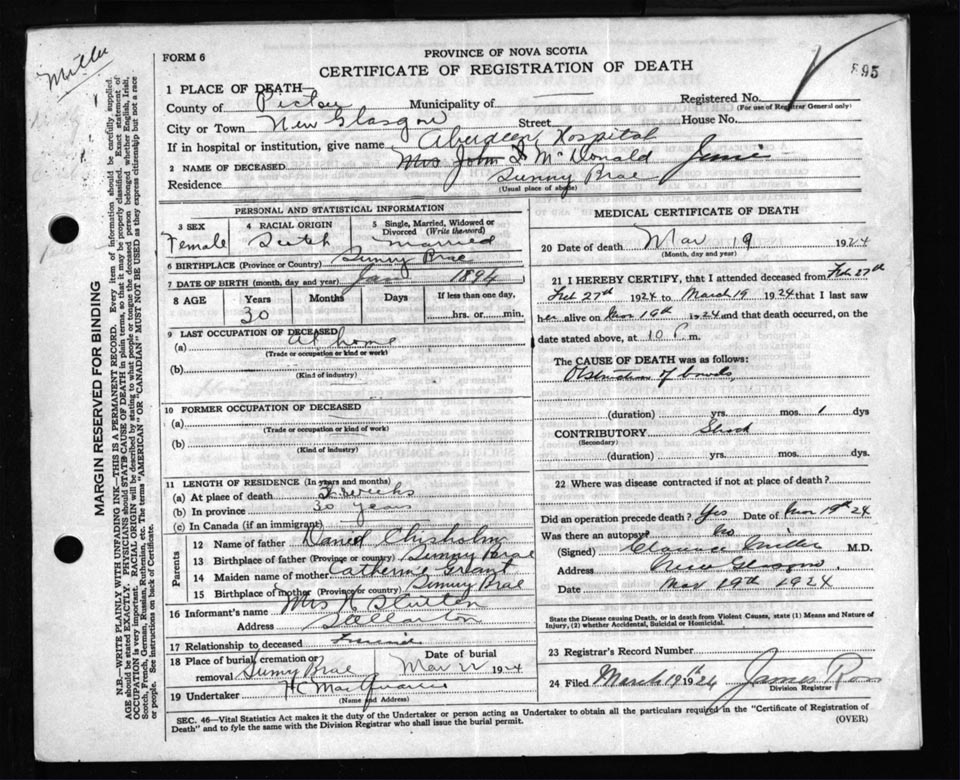 Miller
FORM 6
PROVINCE OF NOVA SCOTIA
CERTIFICATE OF REGISTRATION OF DEATH
895
1 PLACE OF DEATH—
County of Pictou Municipality of
Registered No.
(For use of Registrar General only)
City or Town New Glasgow Street House No.
If in hospital or institution, give name Aberdeen Hospital
2 NAME OF DECEASED Mrs John D McDonald Jessie
Residence Sunny Brae
(Usual place of abode)
PERSONAL AND STATISTICAL INFORMATION
3 SEX 4 RACIAL ORIGIN 5 Single, Married, Widowed or Divorced (Write the word)
Female Scotch Married
6 BIRTHPLACE (Province or Country) Sunny Brae
7 DATE OF BIRTH (month, day and year) Jan 1894
8 AGE Years Months Days If less than one day,
30 ....hrs. or....min.
9 LAST OCCUPATION OF DECEASED
(a) At home
(Trade or occupation or kind of work)
(b)
(Kind of industry)
10 FORMER OCCUPATION OF DECEASED
(a)
(Trade or occupation or kind of work)
(b)
(Kind of industry)
11 LENGTH OF RESIDENCE (In years and months)
(a) At place of death 3 weeks
(b) In province 30 years
(c) In Canada (if an immigrant)
Parents
12 Name of father Daniel Chisholm
13 Birthplace of father (Province or country) Sunny Brae
14 Maiden name of mother Catherine Grant
15 Birthplace of mother (Province or country) Sunny Brae
16 Informant's name Mrs
Address Stellarton
17 Relationship to deceased
18 Place of burial, cremation or removal Sunny Brae Date of burial Mar 22 1924
19 Undertaker H MacQuarrie
(Name and Address)
MEDICAL CERTIFICATE OF DEATH
20 Date of death Mar 19 1924
(Month, day and year)
21 I HEREBY CERTIFY, that I attended deceased from Feb 27th
Feb 27th 1924 to March 19 1924 that I last saw
her alive on Mar 19th 1924 and that death occurred, on
date stated above, at 10 P.m.
The CAUSE OF DEATH was as follows:
Obstruction of bowels,
(duration) yrs. mos. 1 dys
CONTRIBUTORY Shock
(Secondary)
(duration) yrs. mos. dys.
22 Where was disease contracted if not at place of death?
Did an operation precede death? Yes Date of Mar 19th 24
Was there an autopsy? No
(Signed) Clarence Miller M.D.
Address New Glasgow
Date Mar 19th 1924
State the Disease causing Death, or in death from Violent Causes, state (1) Means and Nature of
Injury, (2) whether Accidental, Suicidal or Homicidal.
23 Registrar's Record Number
24 Filed March 19th 1924 James
Division Registrar
SEC. 46—Vital Statistics Act makes it the duty of the Undertaker or person acting as Undertaker to obtain all the particulars required in the "Certificate of Registration of
Death" and to fyle the same with the Division Registrar who shall issue the burial permit.
(OVER)
MARGIN RESERVED FOR BINDING
N.B.—WRITE PLAINLY WITH UNFADING INK—THIS IS A PERMANENT RECORD. Every item of information should be carefully supplied.
AGE should be stated EXACTLY. PHYSICIANS should STATE CAUSE OF DEATH in plain terms, so that it may be properly classified. Exact statement of
OCCUPATION is very important. RACIAL ORIGIN will be described by stating to what people or tongue the deceased person belonged whether English, Irish,
Scotch, French, German, Russian, Ruthenian, etc. The terms "AMERICAN" OR "CANADIAN" MUST NOT BE USED as they express citizenship but not a race
or people. See instructions on back of Certificate.